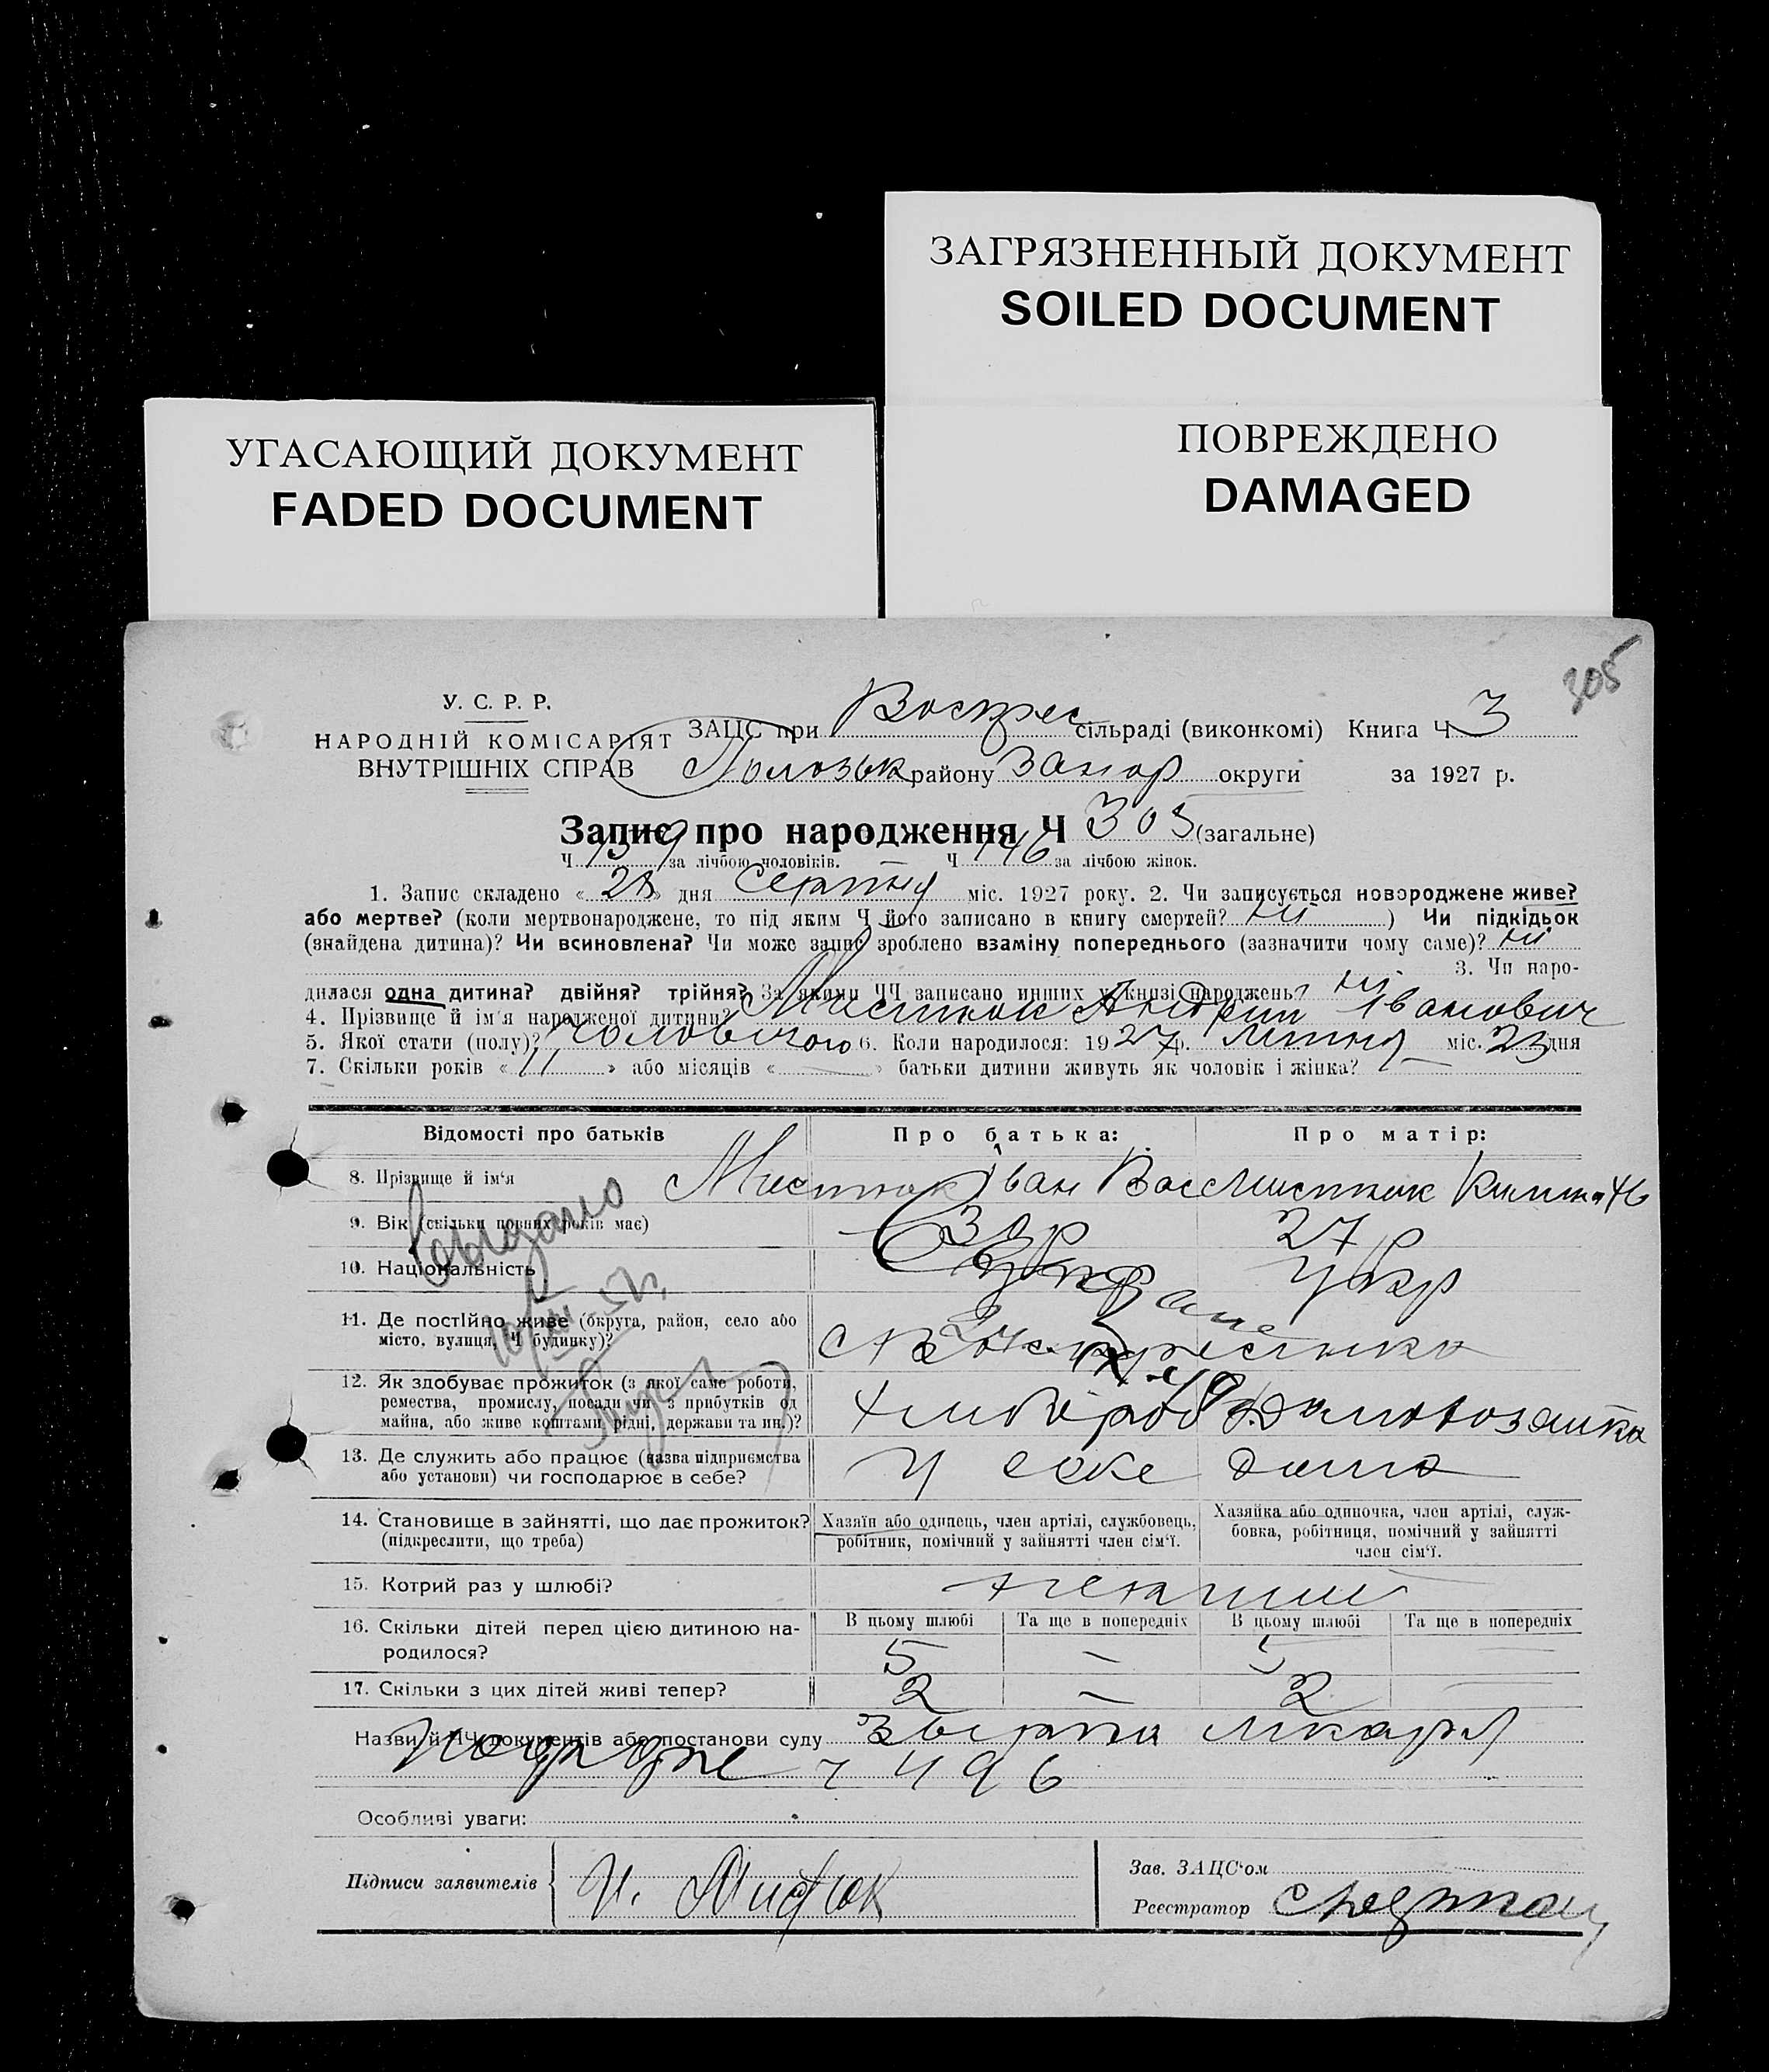 ЗАГРЯЗНЕННЫЙ ДОКУМЕНТ
SOILED DOCUMENT
УГАСАЮЩИЙ ДОКУМЕНТ
FADED DOCUMENT
ПОВРЕЖДЕНО
DAMAGED
305
У. С. Р. Р.
НАРОДНІЙ КОМІСАРІЯТ
ВНУТРІШНІХ СПРАВ
ЗАЦС при Воскрес сільраді (виконкомі) Книга Ч 3
Пологськ району Запор округи за 1927 р.
Запис про народження Ч 305 (загальне)
Ч 159 за лічбою чоловіків. — Ч 146 за лічбою жінок.
1. Запис складено « 28 » дня Серпня міс. 1927 року. 2. Чи записується новороджене живе?
або мертве? (коли мертвонароджене, то під яким Ч його записано в книгу смертей? ні ) Чи підкідьок
(знайдена дитина)? Чи всиновлена? Чи може запис зроблено взаміну попереднього (зазначити чому саме)? ні
3. Чи наро-
дилася одна дитина? двійня? трійня? За якими ЧЧ записано инших у книзі народжень? ні
4. Прізвище й ім'я народженої дитини? Мистюк Андрій Іванович
5. Якої стати (полу)? Чоловічого 6. Коли народилося: 1927 р. липня міс. 23 дня
7. Скільки років « 11 » або місяців « — » батьки дитини живуть як чоловік і жінка? —
Відомості про батьків Про батька: Про матір:
8. Прізвище й ім'я Мистюк Іван Вас Мистюк
9. Вік (скільки повних років має) 30 р 27 р
10. Національність Укр Укр
11. Де постійно живе (округа, район, село або
місто, вулиця, Ч будинку)?
с Воскресенка
12. Як здобуває прожиток (з якої саме роботи,
ремества, промислу, посади чи з прибутків од
майна, або живе коштами рідні, держави та ин.)?
хлібороб Домовозяйка
13. Де служить або працює (назва підприємства
або установи) чи господарює в себе?
У себе дома
14. Становище в зайнятті, що дає прожиток?
(підкреслити, що треба)
Хазяїн або одинець, член артілі, службовець,
робітник, помічний у зайнятті член сім'ї.
Хазяйка або одиночка, член артілі, служ-
бовка, робітниця, помічний у зайнятті
член сім'ї.
15. Котрий раз у шлюбі?
В цьому шлюбі Та ще в попередніх В цьому шлюбі Та ще в попередніх
16. Скільки дітей перед цією дитиною на-
родилося?
5 — 5 —
17. Скільки з цих дітей живі тепер? 2 — 2 —
Назви й ЧЧ документів або постанови суду
ч 496
Особливі уваги:
Підписи заявителів И. Мистюк
Зав. ЗАЦС'ом
Реєстратор